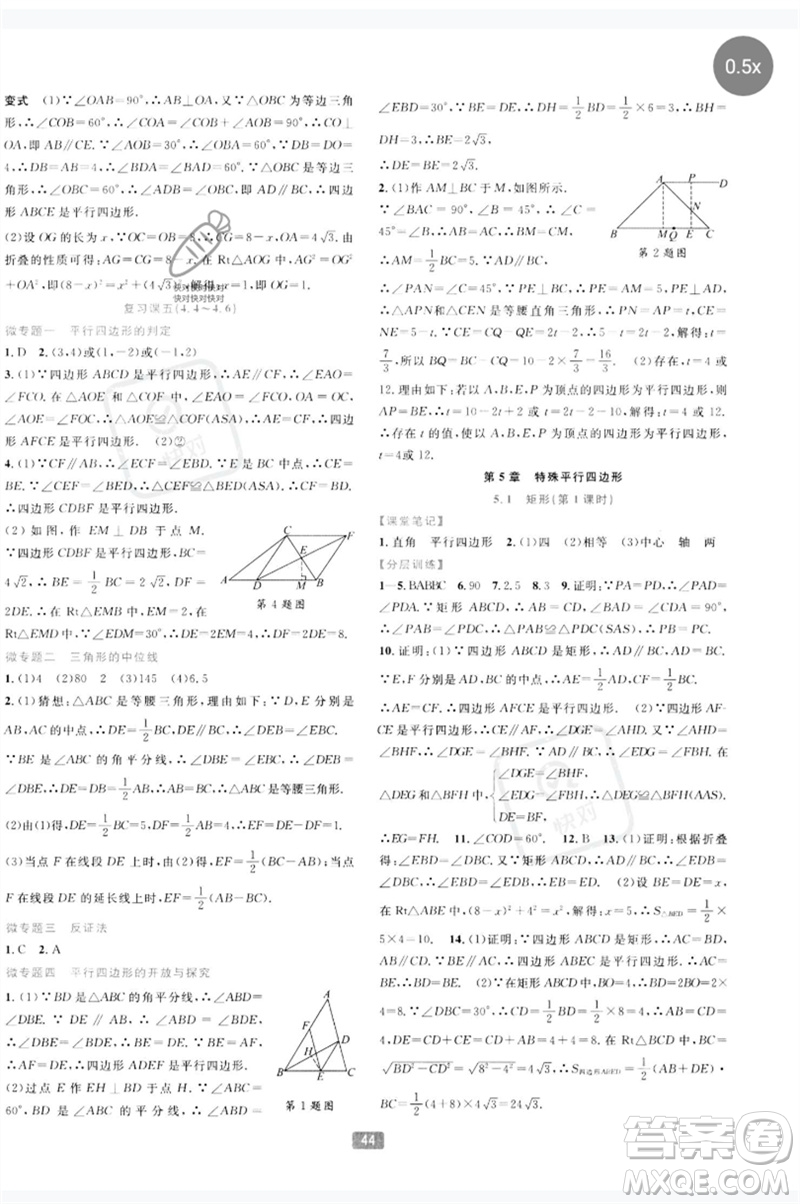 0.5x
变式 (1)∵∠OAB=90°,∴AB⊥OA,又∵△OBC为等边三角
形,∴∠COB=60°,∴∠COA=∠COB+∠BOA=90°,∴CO⊥
OA,即AB∥OC,即∠DCO=∠ABD=60°.∵DB=DO=
4,∴DB=AB=4,∴△BDA是等边三角形,∴∠BDA=60°,即
∠BDA=∠OBC=60°,∴AD∥BC,即AE∥BC,∴四边
形ABCE是平行四边形.
(2)设OG的长为x,∵OC=OB=8,∴CG=8-x,由
折叠的性质可得:AG=CG=8-x,在Rt△AOG中,AG²=OG²
+OA²,即(8-x)²=x²+(4√3)²,解得:x=1,即OG=1.
快对快对快对
快对快对快对
复习课五(4.4~4.6)
微专题一 平行四边形的判定
1.D 2.(3,4)或(1,-2)或(-1,2)
3.(1)∵四边形ABCD是平行四边形,∴AE∥CF,∴∠EAO=
∠FCO.在△AOE和△COF中,∵∠EAO=∠FCO,AO=CO,
∠AOE=∠COF,∴△AOE≌△COF(ASA),∴OE=OF,∴四边
形AFCE是平行四边形. (2)②
4.(1)∵CF∥AB,∴∠ECF=∠EBD.∵E是BC中点,∴CE=
BE.∵∠CEF=∠BED,∴△CEF≌△BED(ASA),∴CF=BD,
∴四边形CDBF是平行四边形.
(2)如图,作EM⊥DB于点M.∵
四边形CDBF是平行四边形,BC=
4√2,∴BE=1/2BC=2√2,DF=
2DE.在Rt△EMB中,EM=2=BM,
在Rt△EMD中,∵∠EDM=30°,∴DE=2EM=4,∴DF=2DE=8.
第4题图
微专题二 三角形的中位线
1.(1)4 (2)80 2 (3)145 (4)6.5
2.(1)猜想:△ABC是等腰三角形.理由如下:∵D,E分别是
AB,AC的中点,∴DE=1/2BC,DE∥BC,∴∠DEB=∠EBC.
∵BE是∠ABC的平分线,∴∠DBE=∠EBC,∴∠DEB=
∠DBE,∴DE=DB=1/2AB,∴AB=BC,∴△ABC是等腰三角形.
(2)由(1)得:DE=1/2BC=5,DF=DB=1/2AB=4,∴EF=1.
(3)当点F在线段DE上时,由(2)得,EF=1/2(BC-AB);当点
F在线段DE的延长线上时,EF=1/2(AB-BC).
微专题三 反证法
1.C 2.A
微专题四 平行四边形的开放与探究
1.(1)∵BD是△ABC的角平分线,∴∠ABD=
∠DBE.∵DE∥AB,∴∠ABD=∠BDE,
∴∠DBE=∠BDE,∴BE=DE.∵BE=AF,
∴AF=DE,∴四边形ADEF是平行四边形.
(2)过点E作EH⊥BD于点H.∵∠ABC=
60°,BD是∠ABC的平分线,∴∠ABD=
第1题图
∠EBD=30°,∵BE=DE,∴BH=DH=1/2BD=1/2×6=3,∴BH=
DH=3,
∴BE=2√3,
∴DE=BE=2√3.
2.(1)作AM⊥BC于M,如图所示.
∵∠BAC=90°,∠B=45°,∴∠C=
45°=∠B,∴AB=AC,∴BM=CM,
∴AM=1/2BC=5.∵AD∥BC,∴
∠PAN=∠C=45°.∵PE⊥BC,∴PE=AM=5,PE⊥AD,
∴△APN和△CEN是等腰直角三角形,∴PN=AP=t,CE=
NE=5-t.∵CE=CQ-QE=2t-2,∴5-t=2t-2,解得:t=
7/3,所以BQ=BC-CQ=10-2×7/3=16/3. (2)存在,t=4或
12.理由如下:若以A,B,E,P为顶点的四边形为平行四边形,则应
AP=BE,∴t=10-2t+2或t=2t-2-10,解得:t=4或12.
∴存在t的值,使以A,B,E,P为顶点的四边形为平行四边形,
t=4或12.
第2题图
第5章 特殊平行四边形
5.1 矩形(第1课时)
【课堂笔记】
1.直角 平行四边形 2.(1)四 (2)相等 (3)中心 轴 两
【分层训练】
1—5.BABBC 6.90 7.2.5 8.3 9.证明:∵PA=PD,∴∠PAD=
∠PDA.∵矩形ABCD中,∴∠BAD=∠ADC=90°,AB=CD,
∴∠PAB=∠PDC,∴△PAB≌△PDC(SAS),∴PB=PC.
10.证明:∵四边形ABCD是矩形,∴AD∥BC,AD=BC.∵E,F
分别是AD,BC的中点,∴AE=1/2AD,CF=1/2BC,
∴AE=CF,∴四边形AFCE是平行四边形,∴AF∥
CE,∴∠DGE=∠AHD.∵∠BHF=∠AHD,∴∠DGE
=∠BHF,∵AD∥BC,∴∠EDG=∠FBH,在
△DEG和△BFH中,{∠DGE=∠BHF, ∠EDG=∠FBH, DE=BF, ∴△DEG≌△BFH(AAS),
∴EG=FH. 11.∠COD=60°. 12.B 13.(1)证明:根据折叠
得:∠EBD=∠CBD.∵四边形ABCD是矩形,∴AD∥BC,
∴∠EDB=∠CBD,∴∠EDB=∠EBD,∴BE=DE. (2)∵
四边形ABCD是矩形,∴∠A=90°.设BE=DE=x,则AE=8-x,
在Rt△ABE中,(8-x)²+4²=x²,解得:x=5,∴S△BED=1/2
×5×4=10. 14.(1)证明:∵四边形ABCD是矩形,∴AC=BD,
AB∥CD.∵BE∥AC,∴四边形ABEC是平行四边形,∴AC=BE,
∴BD=BE. (2)∵在矩形ABCD中,BO=4,∴BD=2BO=2×4
=8.∵∠DBC=30°,∴CD=1/2BD=1/2×8=4,∴AB
=CD=4,DE=CD+CE=CD+AB=4+4=8.在Rt△BCD中,BC=
√BD²-CD²=√8²-4²=4√3,∴S四边形ABED=1/2(AB+DE)·
BC=1/2(4+8)×4√3=24√3.
44
答案圈
MXQE.COM